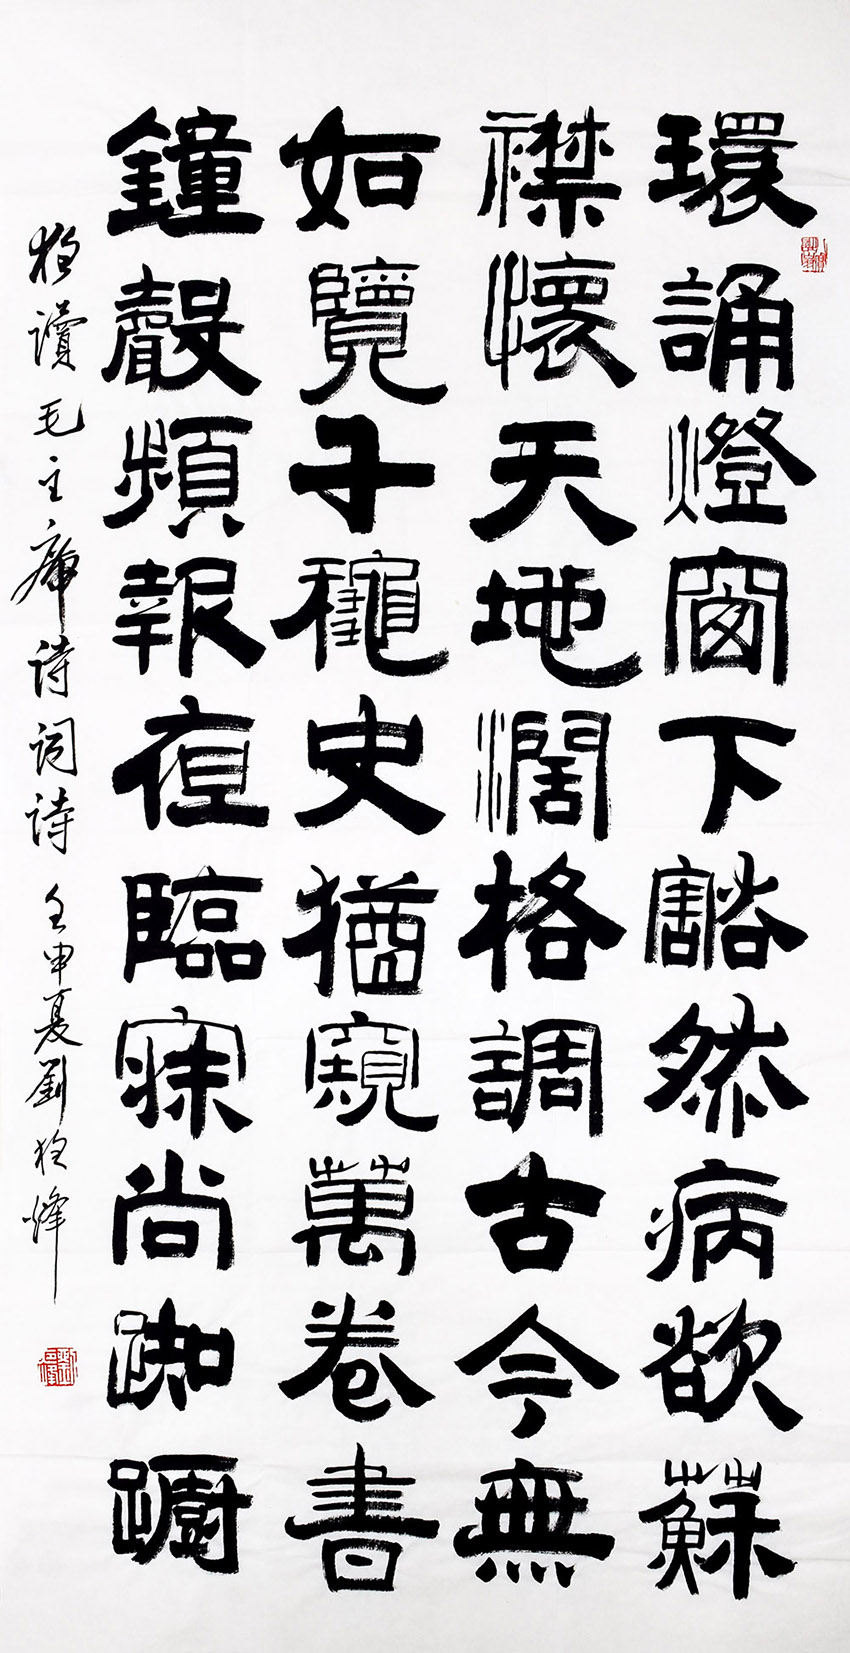 環誦燈窗下豁然病欲蘇
襟懷天地濶格調古今無
如覽千龝史猶窺萬卷書
鐘聲頻報夜臨寐尚踟躕
讀毛主席诗词诗 壬申夏劉烽